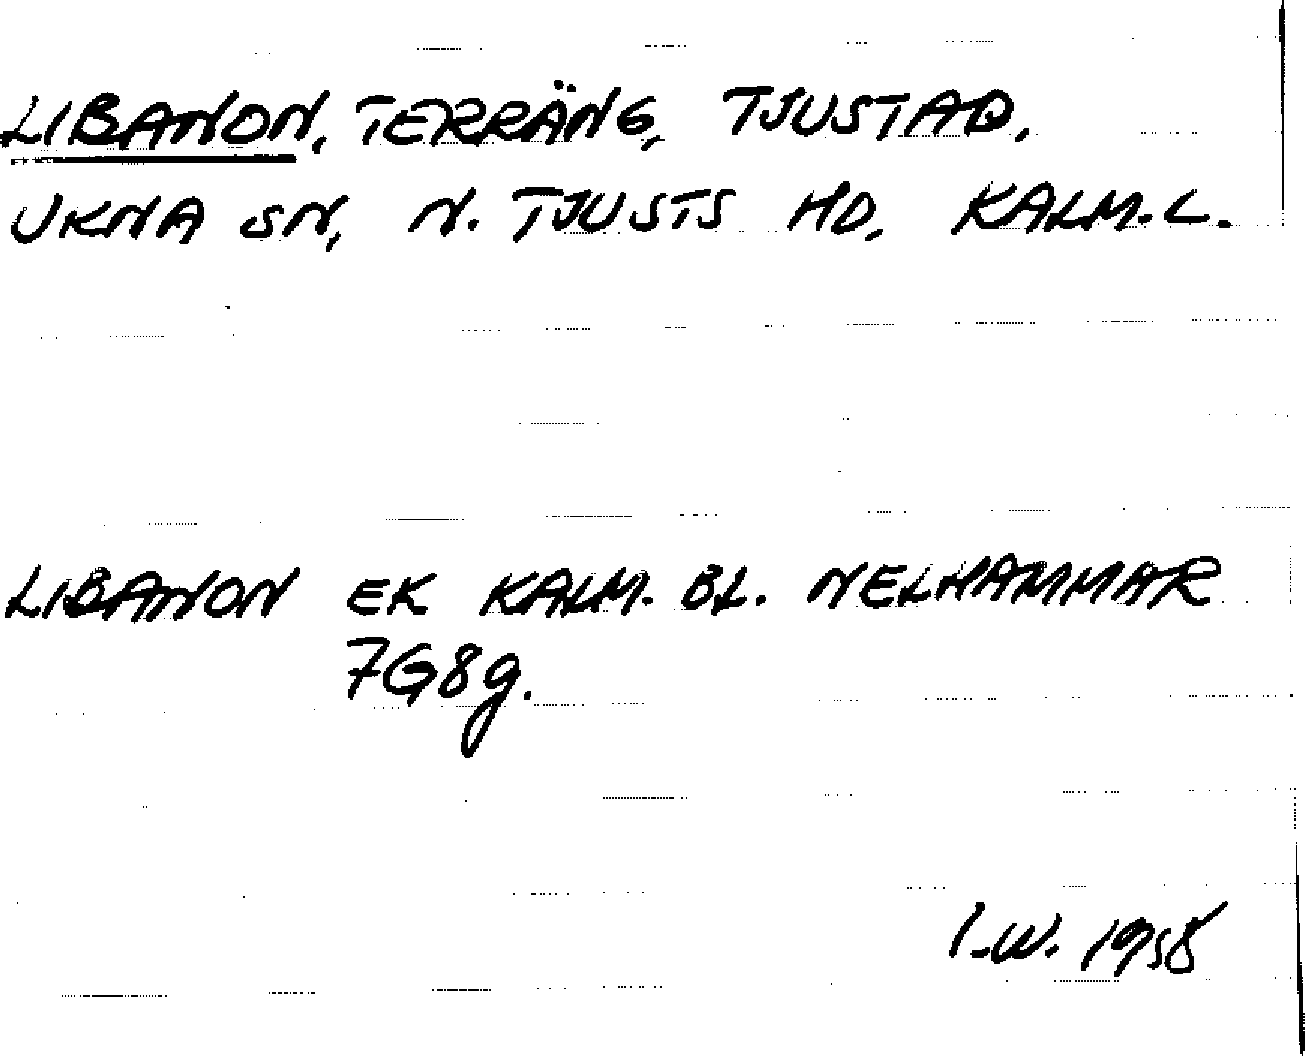 LIBANON, TERRÄNG, TJUSTAD,
UKNA SN, N. TJUSTS HD, KALM. L.
LIBANON EK KALM. BL. NELHAMMAR
7G8g.
I.W. 1958